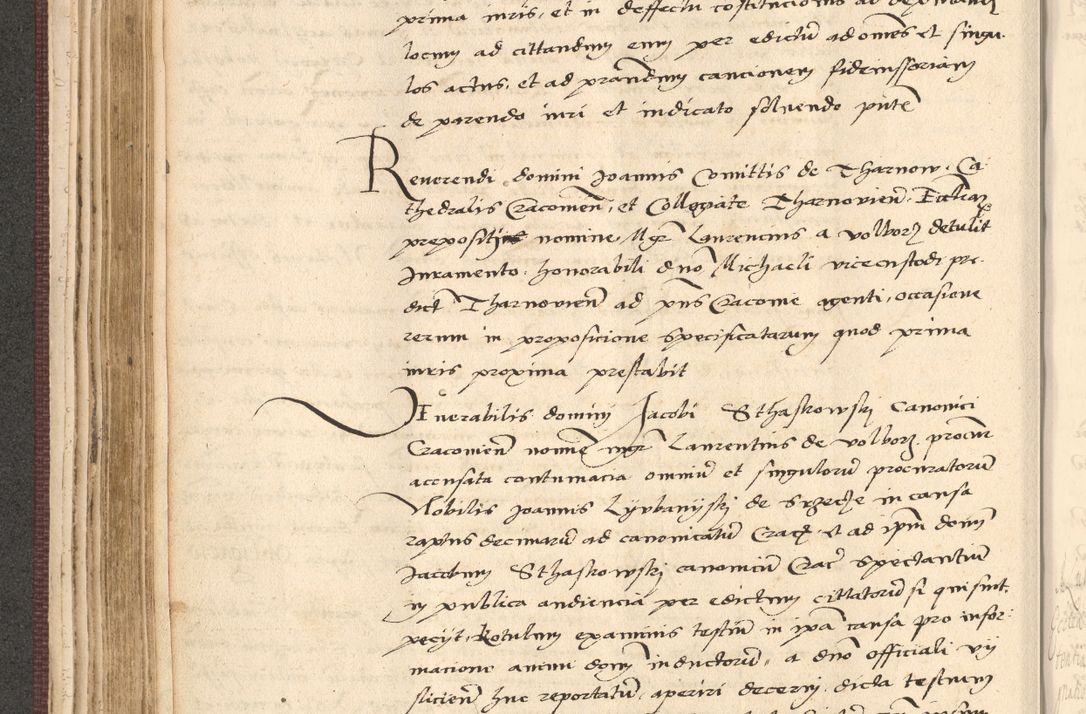 prima iuris, et in deffectu
locum ad cittandum eum per edictũ ad omẽs et singu-
los actus, et ad prãndum caucionem fideiussoriam
de parendo iuri et iudicato solvendo putẽ
Reuerendi domini Joannis Comittis de Tharnow Ca
thedralis Cracovien̄, et Collegiate Tharnovien̄
prepositi nomine Mgr̃ Laurencius a Volborz detulit
Juramento honorabili dño Michaeli vicecustodi pre-
dict Tharnovien̄ ad pñs Cracovie agenti, occasione
rerum in proposicione specificatarum quod prima
iuris proxima prestabit
Venerabilis domini Jacobi Sthaskowskj Canonici
Cracovien̄ noĩe mgr̃ Laurentius de Volborz procur
accusata contumacia omniũ et singulorũ procuratorũ
Nobilis Joannis in causa
raptus decimarũ ad canonicatũ Crac̃ et ad ip̃m domĩ
Jacobum Sthaskowskj canonicũ Crac̃ spectantiũ
in publica audiencia per edictum cittatorũ si qui sunt.
pecijt Rotulum examinis testiũ in ip̃a causa pro infor-
macione animi domĩ inductorũ, a dño officiali
huc reportatũ, aperiri decerni, dicta testium